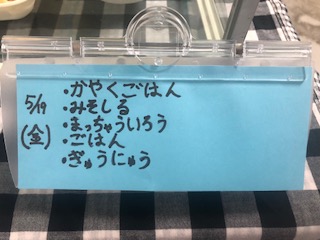 5/19
(金)
・かやくごはん
・みそしる
・まっちゃういろう
・ごはん
・ぎゅうにゅう